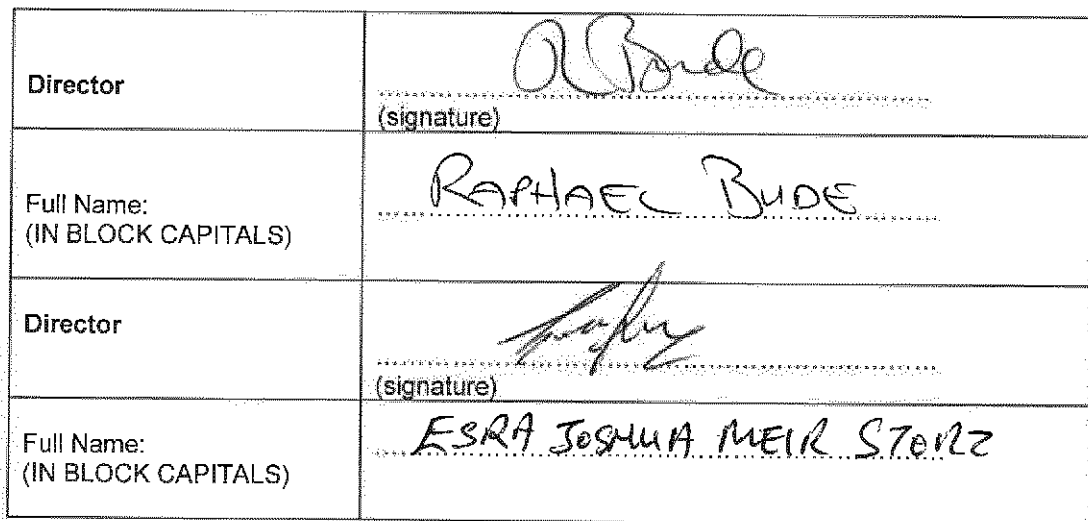 Director
R Bude
(signature)
Full Name:
(IN BLOCK CAPITALS)
RAPHAEL BUDE
Director
(signature)
Full Name:
(IN BLOCK CAPITALS)
ESRA JOSHUA MEIR STORZ